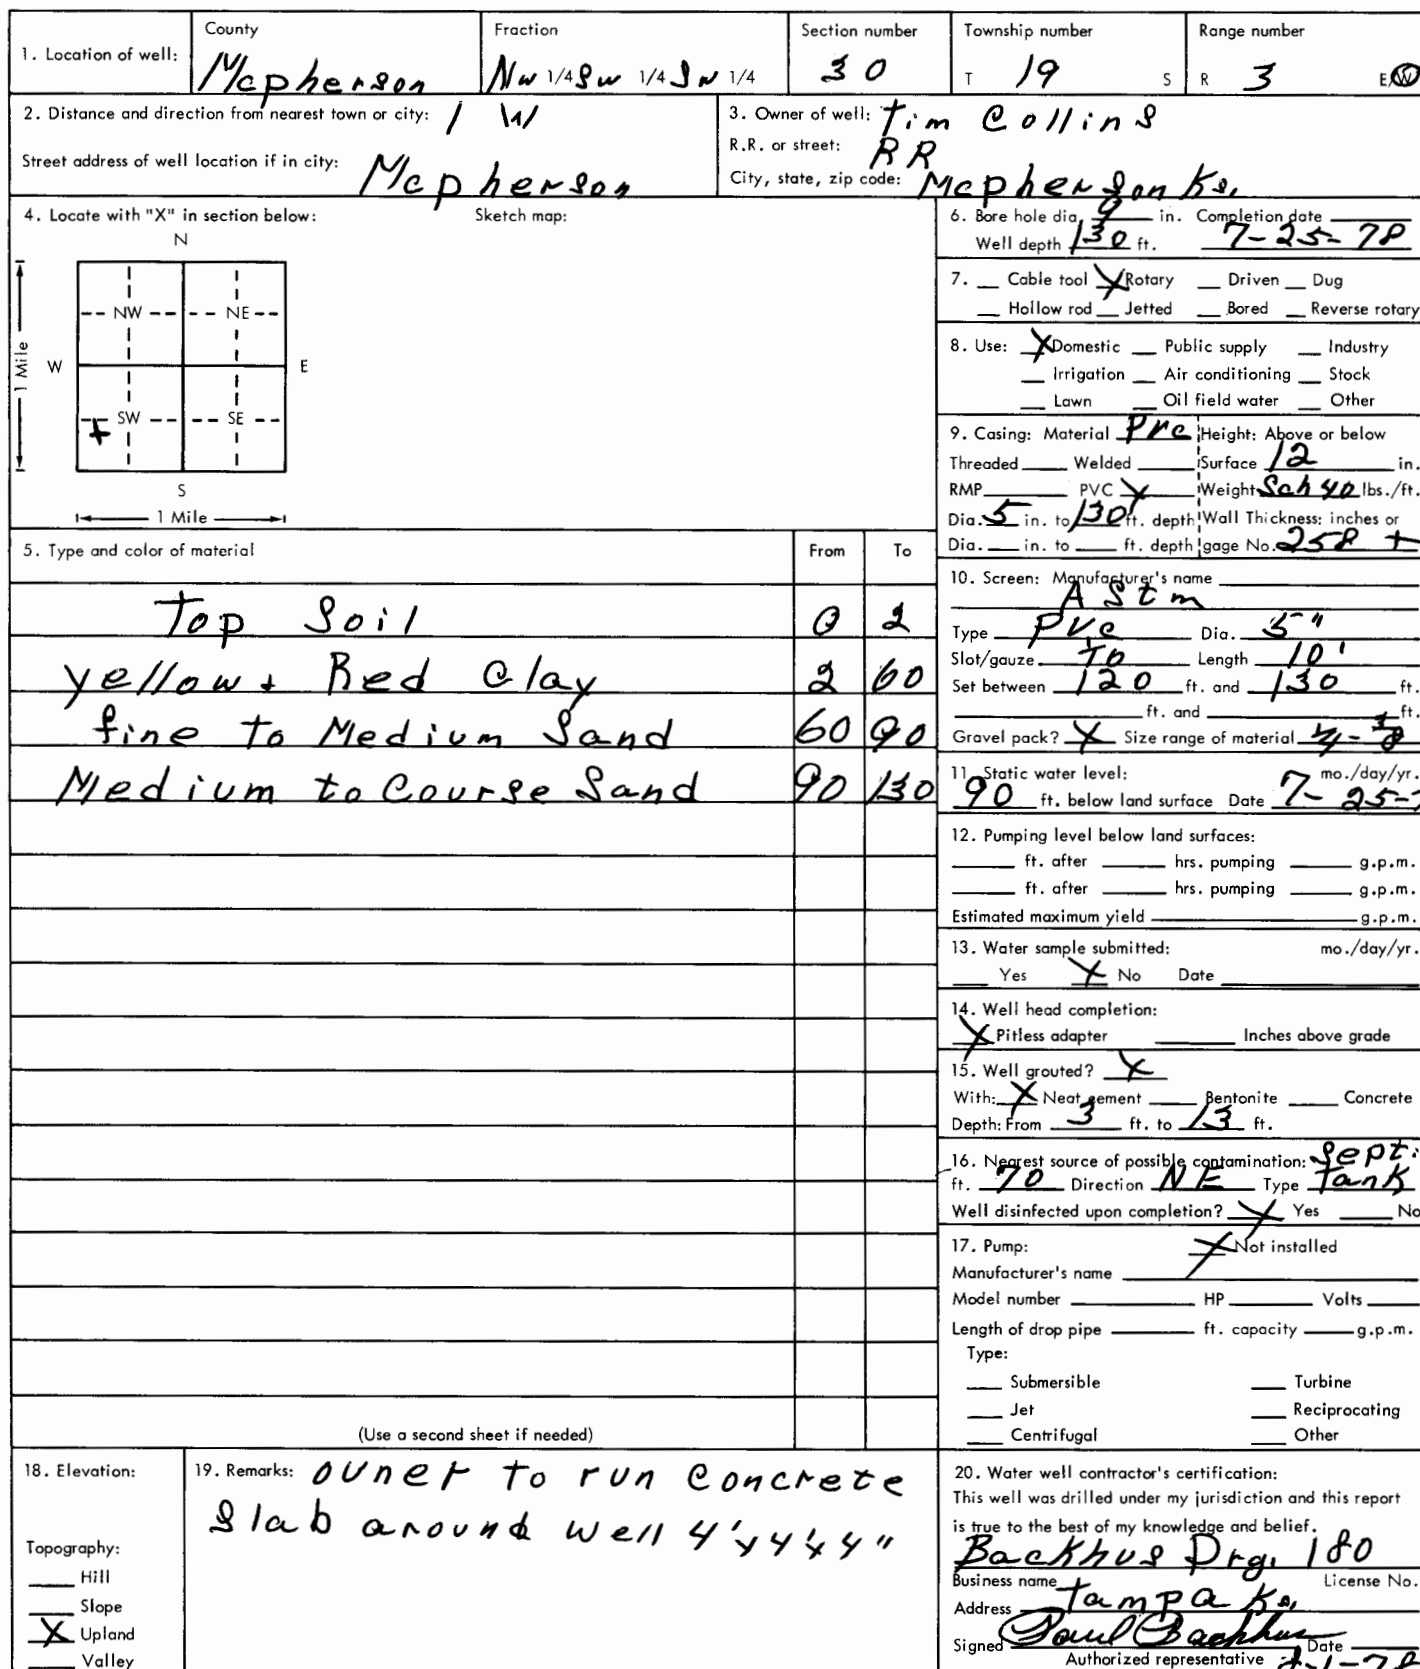 County Fraction Section number Township number Range number
1. Location of well: Mcpherson Nw 1/4 Sw 1/4 Sw 1/4 30 T 19 S R 3 E/W
2. Distance and direction from nearest town or city: 1 W
Street address of well location if in city: Mcpherson
3. Owner of well: Tim Collins
R.R. or street: RR
City, state, zip code: Mcpherson Ks.
4. Locate with "X" in section below: Sketch map:
N
NW NE
1 Mile
W E
SW SE
S
1 Mile
5. Type and color of material From To
Top Soil 0 2
yellow + Red Clay 2 60
fine to Medium Sand 60 90
Medium to Course Sand 90 130
(Use a second sheet if needed)
6. Bore hole dia 9 in. Completion date
Well depth 130 ft. 7-25-78
7. Cable tool X Rotary Driven Dug
Hollow rod Jetted Bored Reverse rotary
8. Use: X Domestic Public supply Industry
Irrigation Air conditioning Stock
Lawn Oil field water Other
9. Casing: Material Pvc Height: Above or below
Threaded Welded Surface 12 in.
RMP PVC X Weight Sch 40 lbs./ft.
Dia. 5 in. to 130 ft. depth Wall Thickness: inches or
Dia. in. to ft. depth gage No. 258 +
10. Screen: Manufacturer's name
AStm
Type Pvc Dia. 5"
Slot/gauze Length 10'
Set between 120 ft. and 130 ft.
ft. and ft.
Gravel pack? X Size range of material
11. Static water level: mo./day/yr.
90 ft. below land surface Date 7-25-
12. Pumping level below land surfaces:
ft. after hrs. pumping g.p.m.
ft. after hrs. pumping g.p.m.
Estimated maximum yield g.p.m.
13. Water sample submitted: mo./day/yr.
Yes X No Date
14. Well head completion:
X Pitless adapter Inches above grade
15. Well grouted? X
With: X Neat cement Bentonite Concrete
Depth: From 3 ft. to 13 ft.
16. Nearest source of possible contamination: Sept.
ft. 70 Direction NE Type Tank
Well disinfected upon completion? X Yes No
17. Pump: X Not installed
Manufacturer's name
Model number HP Volts
Length of drop pipe ft. capacity g.p.m.
Type:
Submersible Turbine
Jet Reciprocating
Centrifugal Other
18. Elevation:
Topography:
Hill
Slope
X Upland
Valley
19. Remarks: owner to run Concrete
Slab around well 4'x4'x4"
20. Water well contractor's certification:
This well was drilled under my jurisdiction and this report
is true to the best of my knowledge and belief.
Backhus Drg. 180
Business name License No.
Address Tampa Ks.
Signed Paul Backhus Date
Authorized representative -1-78